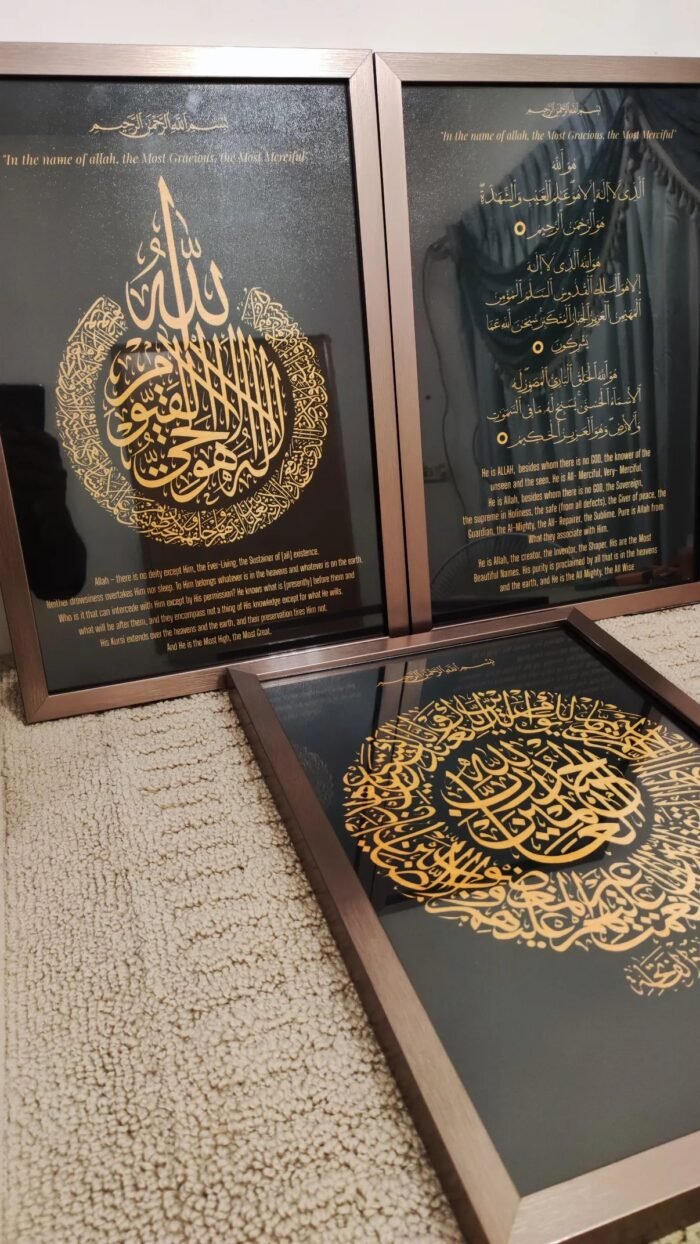 بِسْمِ ٱللَّهِ ٱلرَّحْمَٰنِ ٱلرَّحِيمِ
"In the name of allah, the Most Gracious, the Most Merciful"
الله
لا إله إلا هو الحي القيوم
Allah – there is no deity except Him, the Ever-Living, the Sustainer of [all] existence.
Neither drowsiness overtakes Him nor sleep. To Him belongs whatever is in the heavens and whatever is on the earth.
Who is it that can intercede with Him except by His permission? He knows what is [presently] before them and
what will be after them, and they encompass not a thing of His knowledge except for what He wills.
His Kursi extends over the heavens and the earth, and their preservation tires Him not.
And He is the Most High, the Most Great.
بِسْمِ ٱللَّهِ ٱلرَّحْمَٰنِ ٱلرَّحِيمِ
"In the name of allah, the Most Gracious, the Most Merciful"
هُوَ ٱللَّهُ
ٱلَّذِى لَآ إِلَٰهَ إِلَّا هُوَ عَٰلِمُ ٱلْغَيْبِ وَٱلشَّهَٰدَةِ
هُوَ ٱلرَّحْمَٰنُ ٱلرَّحِيمُ
هُوَ ٱللَّهُ ٱلَّذِى لَآ إِلَٰهَ
إِلَّا هُوَ ٱلْمَلِكُ ٱلْقُدُّوسُ ٱلسَّلَٰمُ ٱلْمُؤْمِنُ
ٱلْمُهَيْمِنُ ٱلْعَزِيزُ ٱلْجَبَّارُ ٱلْمُتَكَبِّرُ سُبْحَٰنَ ٱللَّهِ عَمَّا
يُشْرِكُونَ
هُوَ ٱللَّهُ ٱلْخَٰلِقُ ٱلْبَارِئُ ٱلْمُصَوِّرُ لَهُ
ٱلْأَسْمَآءُ ٱلْحُسْنَىٰ يُسَبِّحُ لَهُۥ مَا فِى ٱلسَّمَٰوَٰتِ
وَٱلْأَرْضِ وَهُوَ ٱلْعَزِيزُ ٱلْحَكِيمُ
He is ALLAH, besides whom there is no GOD, the knower of the
unseen and the seen. He is All- Merciful, Very- Merciful,
He is Allah, besides whom there is no GOD, the Sovereign,
the supreme in Holiness, the safe (from all defects), the Giver of peace, the
Guardian, the Al-Mighty, the All- Repairer, the Sublime. Pure is Allah from
What they associate with Him.
He is Allah, the creator, the Inventor, the Shaper, His are the Most
Beautiful Names, His purity is proclaimed by all that is in the heavens
and the earth, and He is the All Mighty, the All Wise
بِسْمِ ٱللَّهِ ٱلرَّحْمَٰنِ ٱلرَّحِيمِ
الحمد لله رب العالمين
غير المغضوب عليهم